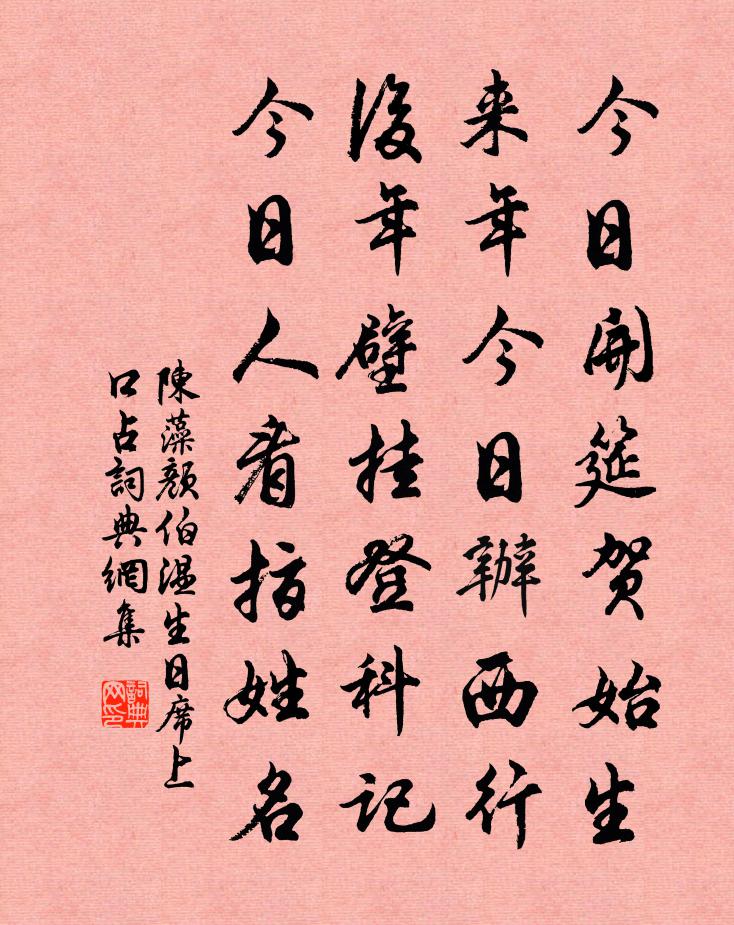 今日開筵贺始生
来年今日辦西行
後年壁挂登科記
今日人看指姓名
陳藻顏伯湿生日席上
口占詞典網集
詞典网印